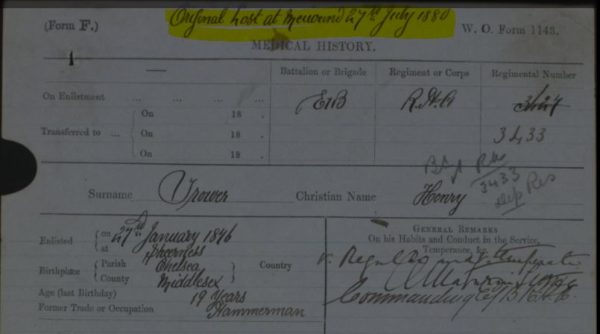 Original Lost at Maiwand 27th July 1880
(Form F.) W. O. Form 1143.
MEDICAL HISTORY.
Battalion or Brigade Regiment or Corps Regimental Number
On Enlistment ... ... ... ... E/B R.H.A
Transferred to ... On 18 . 3433
On 18 .
On 18 .
3433
Dep Res
Surname Trower Christian Name Henry
Enlisted on 27th January 1846
at Inverness
Birthplace Parish Chelsea Country
County Middlesex
Age (last Birthday) 19 Years
Former Trade or Occupation Hammerman
GENERAL REMARKS
On his Habits and Conduct in the Service,
Temperance, &c.
v. Regular and temperate
Commanding E/B R.H.A.